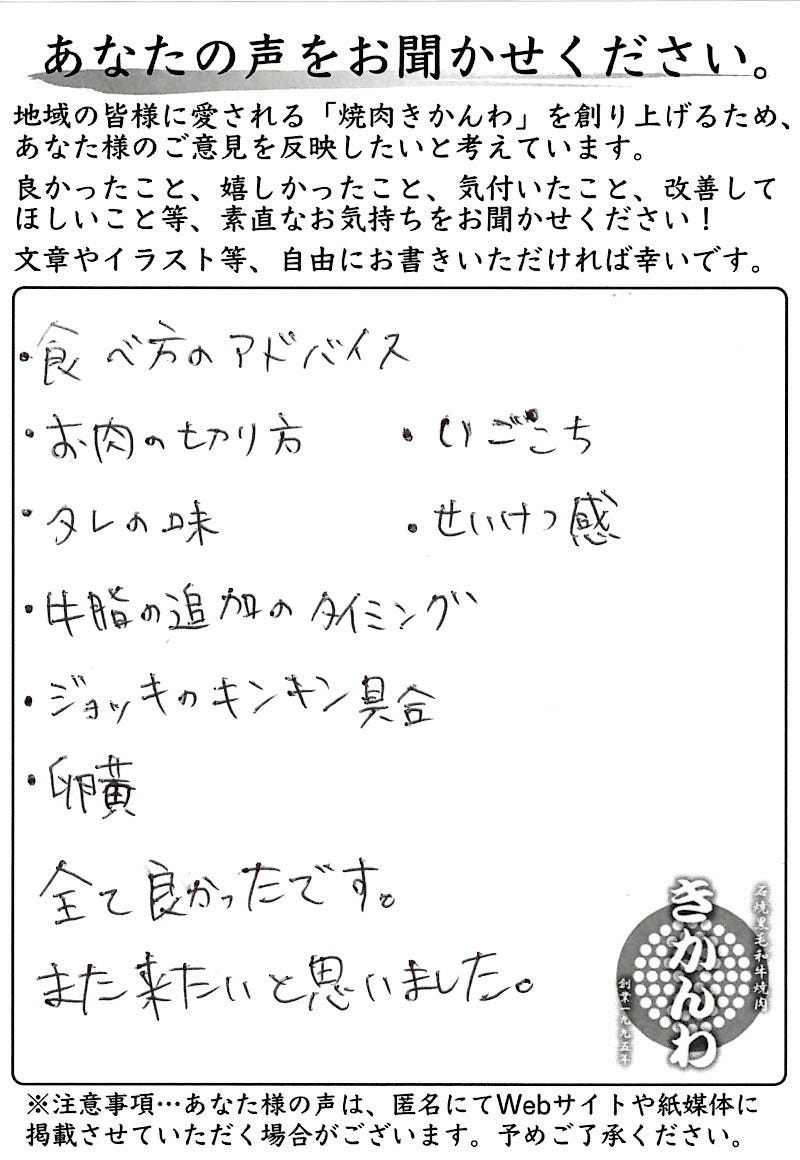 あなたの声をお聞かせください。
地域の皆様に愛される「焼肉きかんわ」を創り上げるため、
あなた様のご意見を反映したいと考えています。
良かったこと、嬉しかったこと、気付いたこと、改善して
ほしいこと等、素直なお気持ちをお聞かせください！
文章やイラスト等、自由にお書きいただければ幸いです。
・食べ方のアドバイス
・お肉の切り方
・いごこち
・タレの味
・せいけつ感
・牛脂の追加のタイミング
・ジョッキのキンキン具合
・卵黄
全て良かったです。
また来たいと思いました。
石焼黒毛和牛焼肉
きかんわ
創業一九九五年
※注意事項…あなた様の声は、匿名にてWebサイトや紙媒体に
掲載させていただく場合がございます。予めご了承ください。